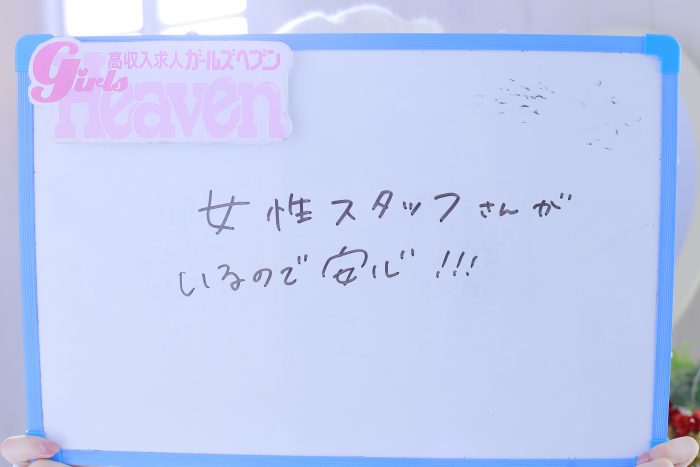 高収入求人ガールズヘブン
Girls
Heaven
女性スタッフさんが
いるので安心!!!